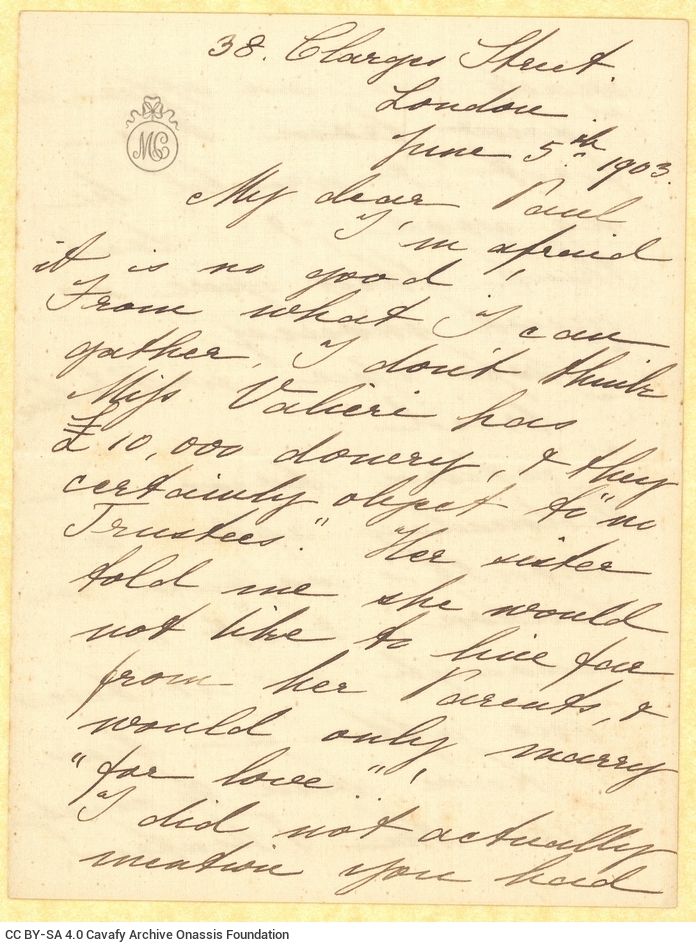 38. Clarges Street.
London
June 5th 1903.
MC
My dear Paul
I'm afraid
it is no good!
From what I can
gather, I don't think
Miss Valieri has
£10,000 dowery, & they
certainly object to "no
Trustees." Her sister
told me she would
not like to live far
from her Parents, &
would only marry
"for love"!
I did not actually
mention you had
CC BY-SA 4.0 Cavafy Archive Onassis Foundation